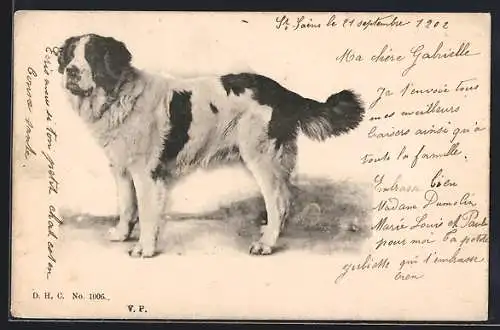 St Saëns le 21 septembre 1902
Ma chère Gabrielle
Je t'envoie tous
mes meilleurs
baisers ainsi qu'à
toute la famille.
Embrasse bien
Madame Dumolin
Marie Louise et Paul
pour moi ta petite
Juliette qui t'embrasse
bien
Ecris moi si ton petit chat est en
bonne santé.
D. H. C. No. 1006.
V. P.